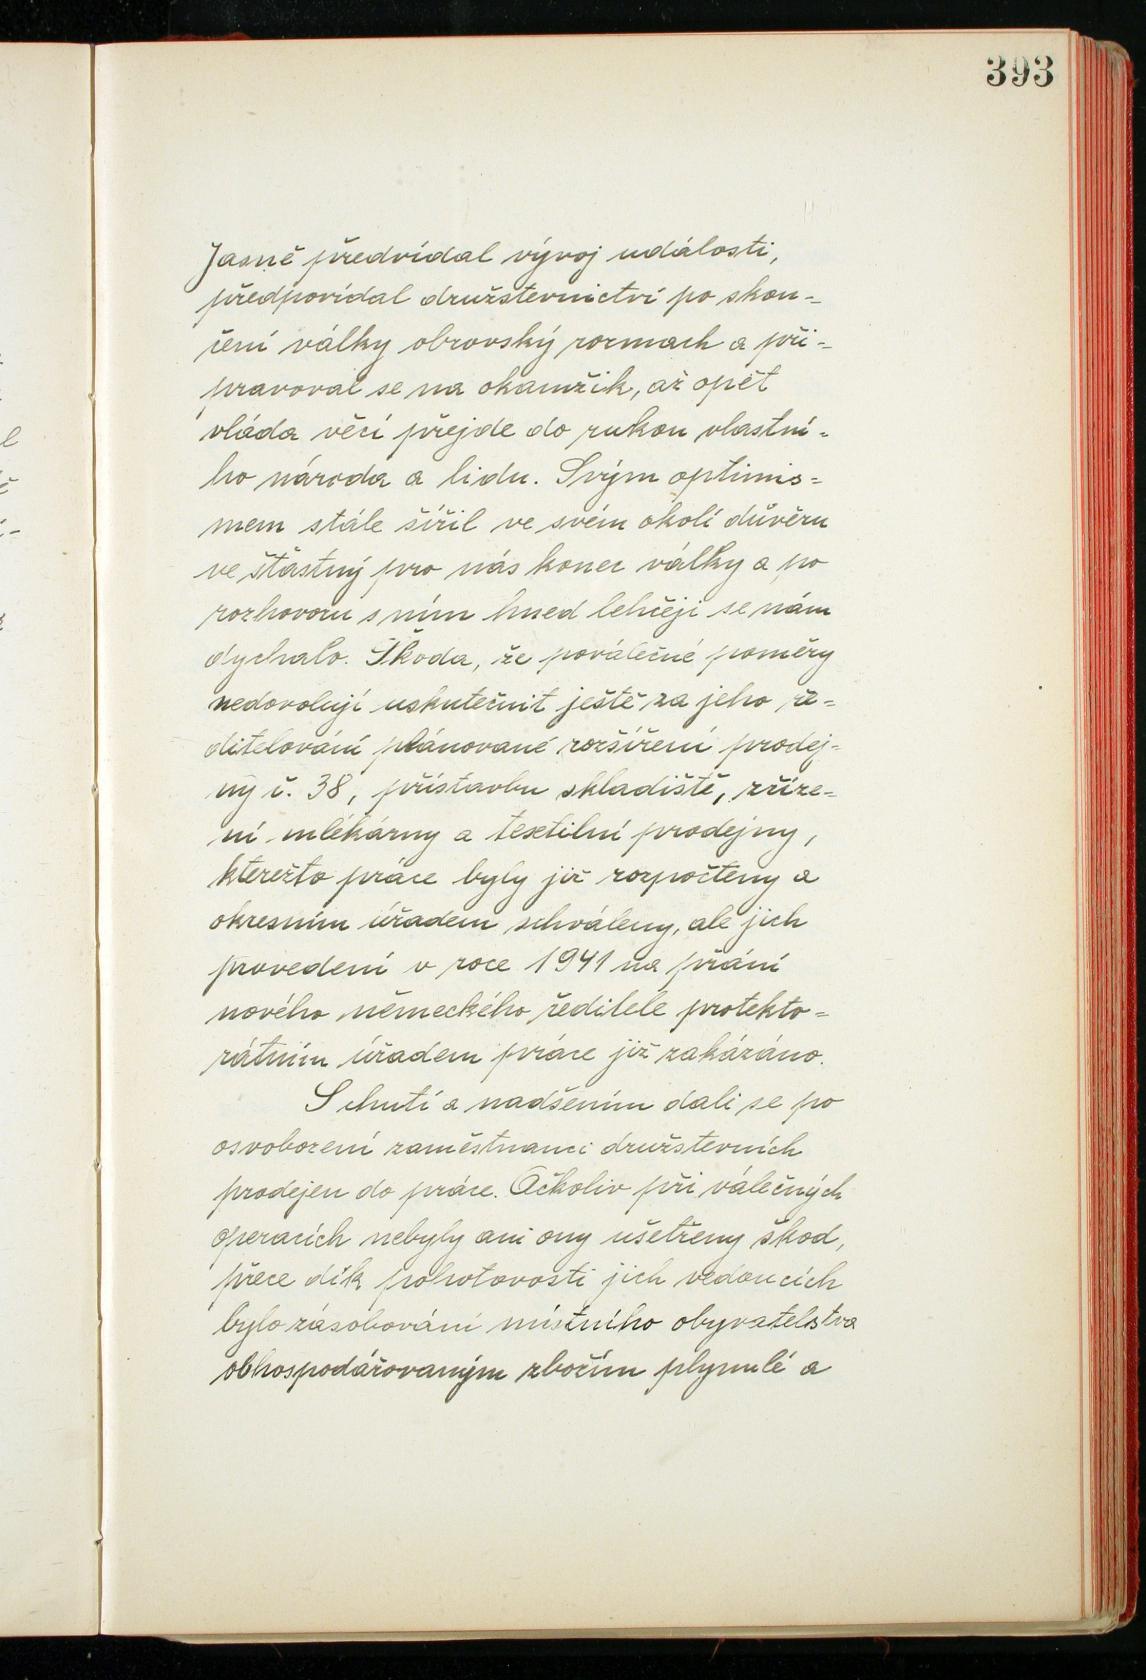 393
Jasně předvídal vývoj událostí,
předpovídal družstevnictví po skon-
čení války obrovský rozmach a při-
pravoval se na okamžik, až opět
vláda věcí přejde do rukou vlastní-
ho národa a lidu. Svým optimis=
mem stále šířil ve svém okolí důvěru
ve šťastný pro nás konec války a po
rozhovoru s ním hned lehčeji se nám
dýchalo. Škoda, že poválečné poměry
nedovolují uskutečnit ještě za jeho ře=
ditelování plánované rozšíření prodej-
ny č. 38, přístavbu skladiště, zříze-
ní mlékárny a textilní prodejny,
kterežto práce byly již rozpočteny a
okresním úřadem schváleny, ale jich
provedení v roce 1941 na přání
nového německého ředitele protekto=
rátním úřadem práce již zakázáno.
S chutí a nadšením dali se po
osvobození zaměstnanci družstevních
prodejen do práce. Ačkoliv při válečných
operacích nebyly ani ony ušetřeny škod,
přece dík pohotovosti jich vedoucích
bylo zásobování místního obyvatelstva
obhospodářovaným zbožím plynulé a